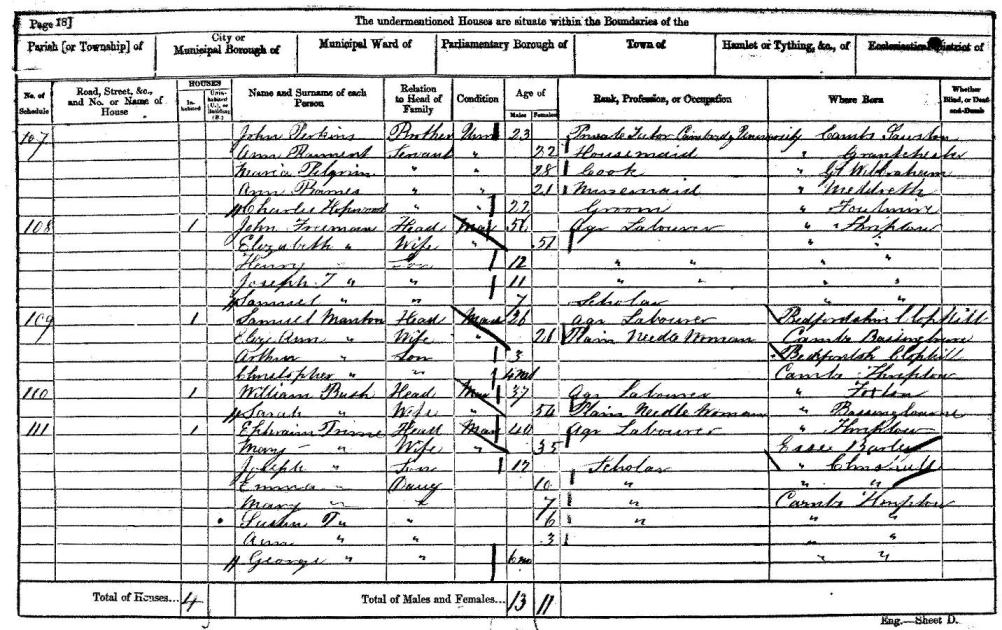 Page 18] The undermentioned Houses are situate within the Boundaries of the
Parish [or Township] of City or Municipal Borough of Municipal Ward of Parliamentary Borough of Town of Hamlet or Tything, &c., of Ecclesiastical District of
No. of Schedule Road, Street, &c., and No. or Name of House HOUSES Inhabited Uninhabited (U.), or Building (B.) Name and Surname of each Person Relation to Head of Family Condition Age of Males Females Rank, Profession, or Occupation Where Born Whether Blind, or Deaf-and-Dumb
107 John Perkins Brother Unm 23 Private Tutor University Cambs
Ann Servant " 22 Housemaid " Grantchester
Maria Pilgrim " " 28 Cook " Gt Wilbraham
Ann " " 21 Nursemaid " Meldreth
Charles Hopwood " " 22 Groom " Foulmire
108 1 John Freeman Head Mar 56 Agr Labourer " Thriplow
Elizabeth " Wife " 51 " "
Henry " Son 12 " " " "
Joseph T " " 11 " " " "
Samuel " " 7 Scholar " "
109 1 Samuel Manton Head Mar 26 Agr Labourer Bedfordshire Clophill
Eliz Ann " Wife " 21 Plain Needle Woman Cambs Bassingbourne
Arthur " Son 3 Clophill
Christopher " " 4 Cambs Thriplow
110 1 William Rush Head Mar 37 Agr Labourer " Foxton
Sarah " Wife " 54 Plain Needle Woman " Bassingbourne
111 1 Ephraim Head Mar 40 Agr Labourer " Thriplow
Mary " Wife " 35 Essex
Joseph " Son 12 Scholar "
Emma " Daug 10 " " "
Mary " " 7 " Cambs Thriplow
Susan " 6 " " "
Ann " " 3 " "
George " " 6 mo " "
Total of Houses... 4 Total of Males and Females... 13 11
Eng.—Sheet D.